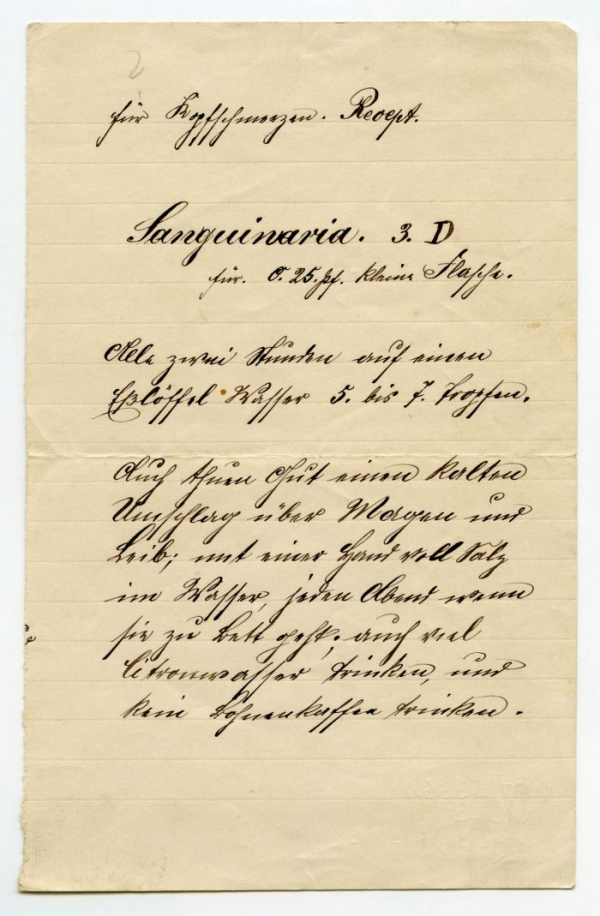 2
für Kopfschmerzen. Recept.
Sanguinaria. 3. D
für. 0.25. Pf. kleine Flasche.
Alle zwei Stunden auf einen
Eßlöffel Wasser 5. bis 7. Tropfen.
Auch thuen Gut einen kalten
Umschlag über Magen und
Leib; mit einer Hand voll Salz
im Wasser, jeden Abend wenn
sie zu Bett geht, auch viel
Citronwasser trinken, und
kein Bohnenkaffee trinken.